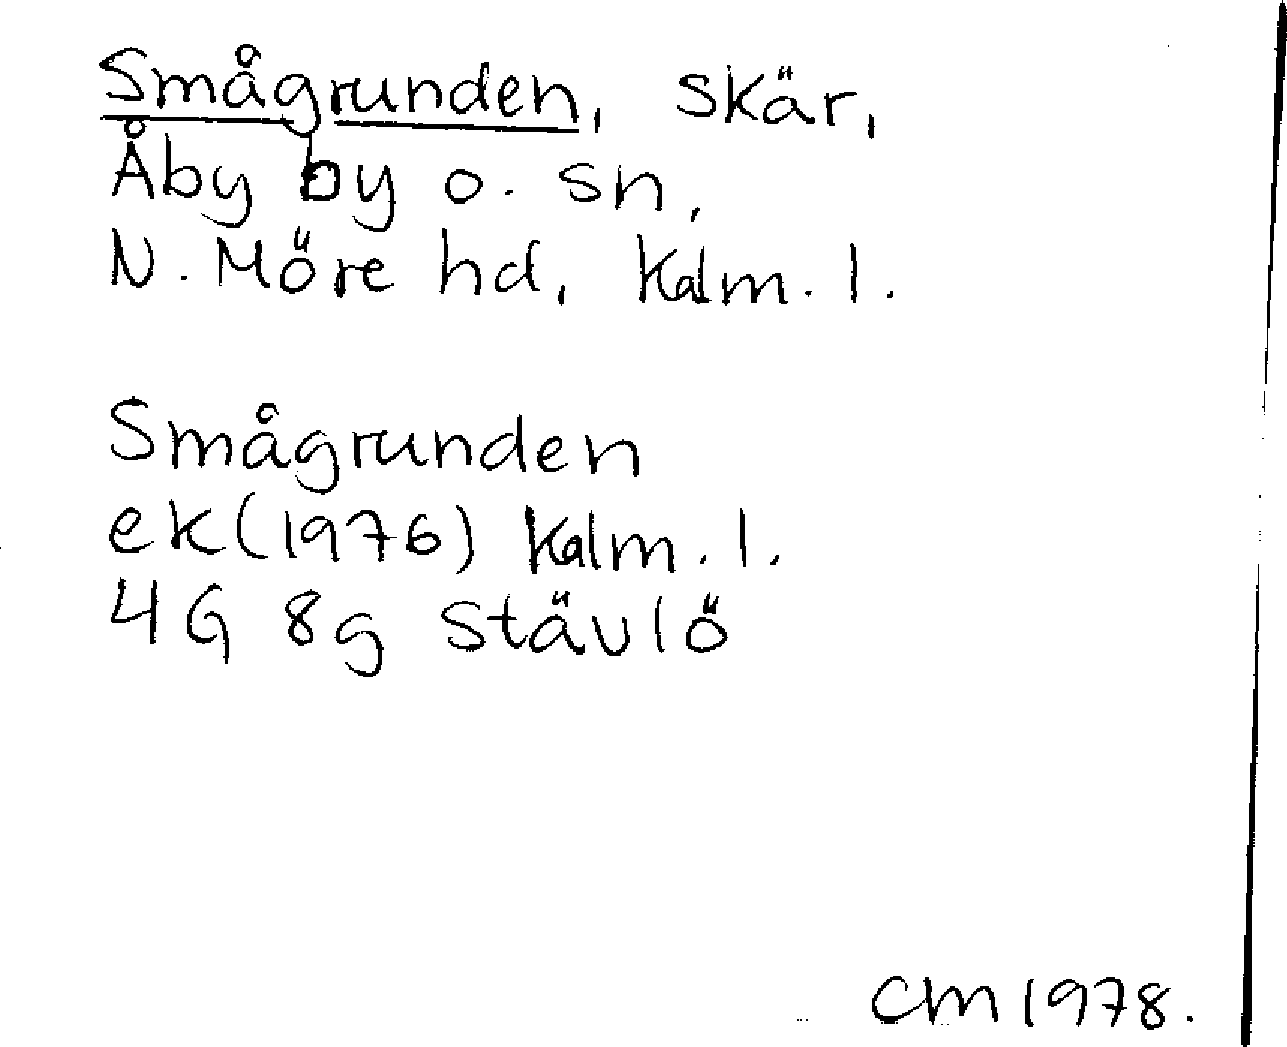 Smågrunden, skär,
Åby by o. sn,
N. Möre hd, Kalm. l.
Smågrunden
ek (1976) Kalm. l.
4G 8g Stävlö
CM 1978.